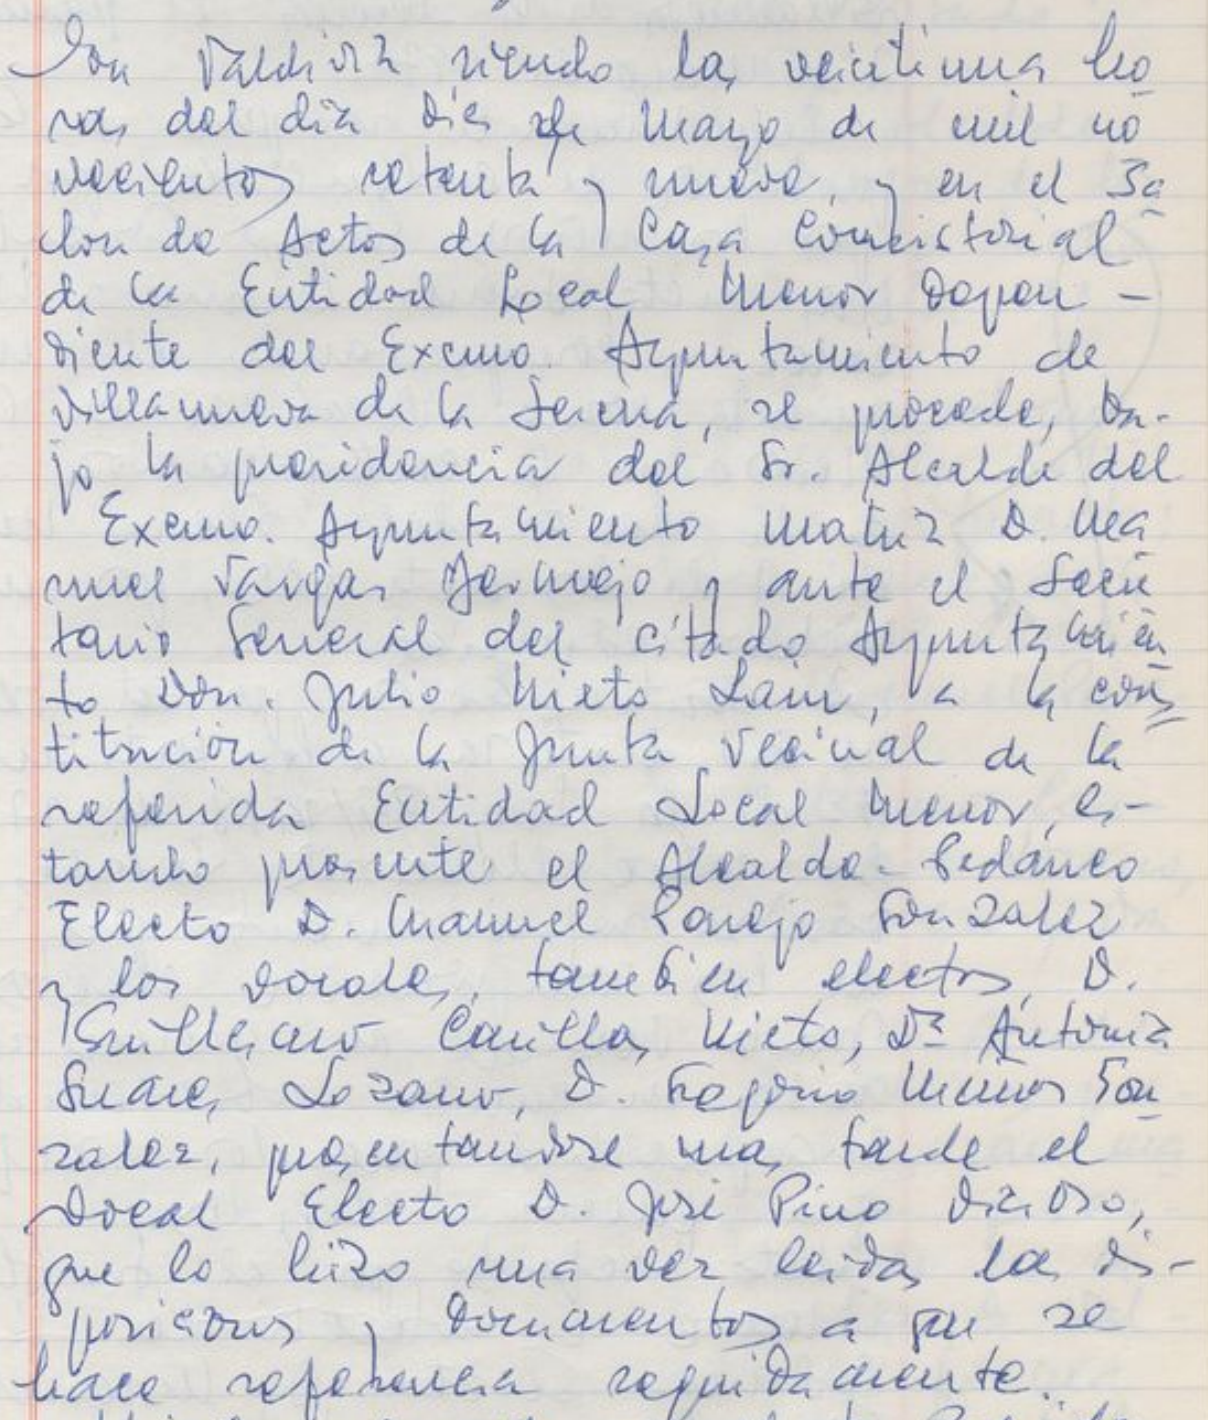 En Valdivia siendo las veintiuna ho
ras del día diez de Mayo de mil no
vecientos setenta y nueve, y en el Sa
lon de Actos de la Casa Consistorial
de la Entidad Local Menor Depen-
diente del Excmo. Ayuntamiento de
Villanueva de la Serena, se procede, ba-
jo la presidencia del Sr. Alcalde del
Excmo. Ayuntamiento matriz D. Ma
nuel Vargas Bermejo y ante el Secre
tario General del citado Ayuntamien
to Don. Julio Nieto, a la cons
titución de la Junta Vecinal de la
referida Entidad Local Menor, es-
tando presente el Alcalde-Pedaneo
Electo D. Manuel Parejo Gonzalez
y los vocales, tambien electos, D.
Guillermo Casillas Nieto, Dª Antonia
Suarez Lozano, D. Gon
zalez, presentandose mas tarde el
Vocal Electo D. José Pino,
que lo hizo una vez leidas las dis-
posiciones y documentos a que se
hace referencia seguidamente.